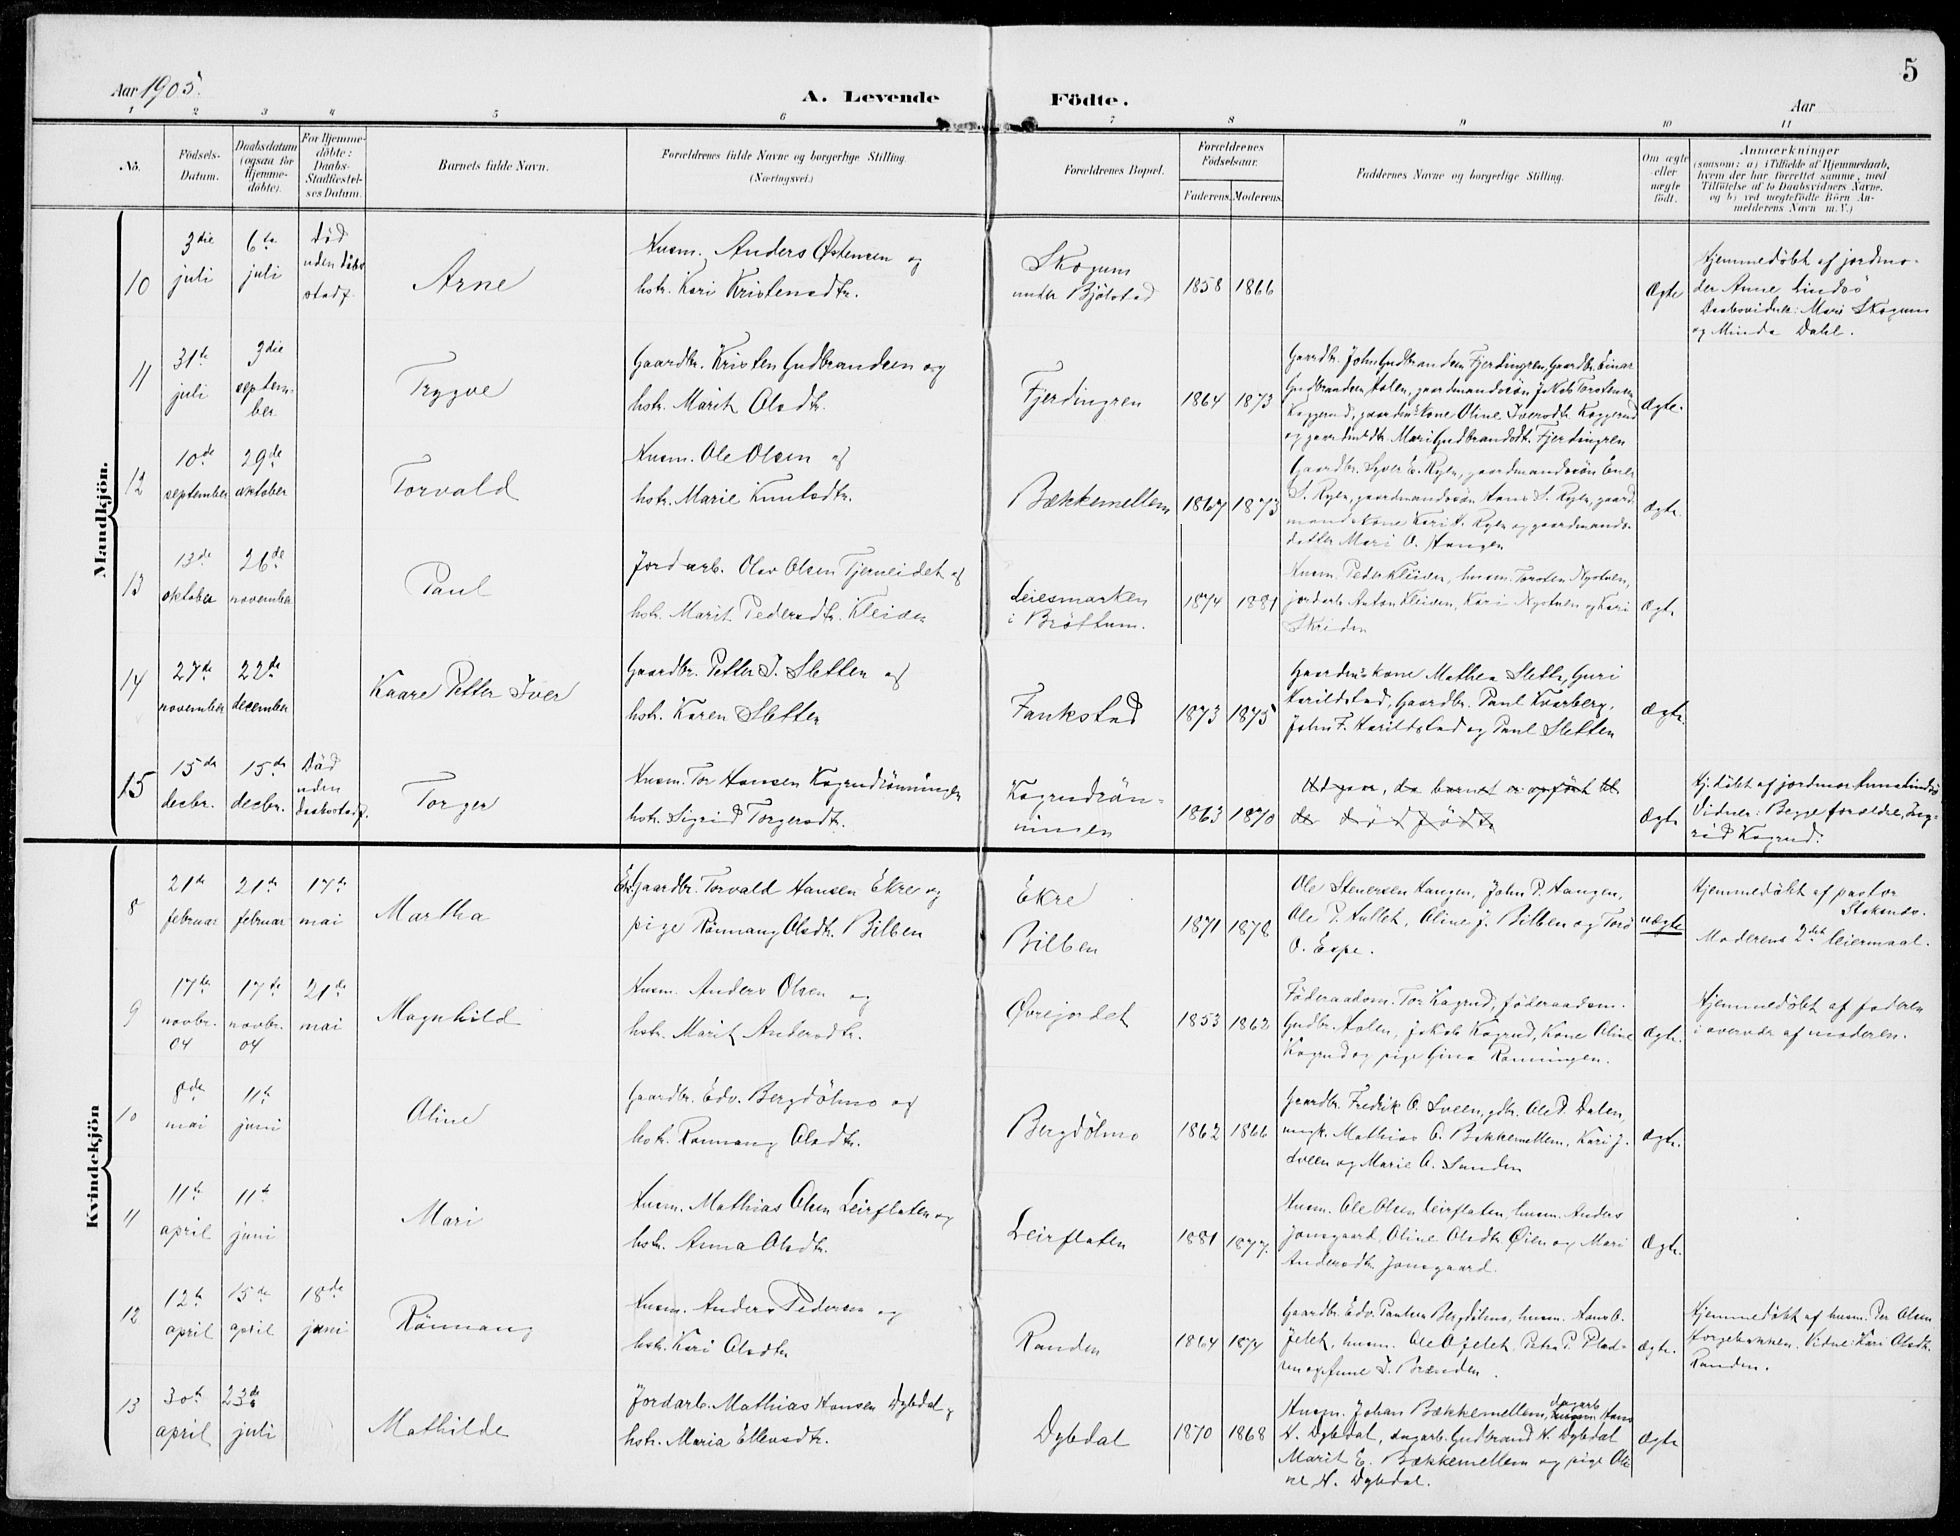 5
Aar 1905.
A. Levende Födte.
Aar
1 2 3 4 5 6 7 8 9 10 11
No.
Födsels-Datum.
Daabsdatum (ogsaa for Hjemmedöbte).
For Hjemmedöbte: Daabs-Stadfæstelses Datum.
Barnets fulde Navn.
Forældrenes fulde Navne og borgerlige Stilling.
(Næringsvei.)
Forældrenes Bopæl.
Forældrenes Födselsaar.
Faderens. Moderens.
Faddernes Navne og borgerlige Stilling.
Om ægte eller uægte födt.
Anmærkninger
(saasom: a) i Tilfælde af Hjemmedaab,
hvem der har forrettet samme, med
Tilföielse af to Daabsvidners Navne,
og b) ved uægtefödte Börn Anmelderens Navn m. V.)
Mandkjön.
10
3die juli
6te juli
död uden dåbsstadf.
Arne
Husm. Anders Østensen og
hstr. Kari Kristensdtr.
Skogum
under Bjölstad
1858 1866
Ægte
Hjemmedöbt af jordmoder
Anne Lindsö
Daabsvidner: Mari Skogum
og Minda Dahl.
11
31te juli
3die september
Trygve
Gaardbr. Kristen Gudbrandsen og
hstr. Marit Olsdtr.
Fjerdingren
1864 1873
Gaardbr. John Gudbrandsen Fjerdingren, Gaardbr. Einar
Gudbrandsen Aalen, gaardmandssön Jakob Torstensen
Kaggerud, gaardm.kone Oline Iversdtr. Kaggerud
og gaardmdtr. Mari Gudbrandsdt. Fjerdingren
Ægte.
12
10de september
29de oktober
Torvald
Husm. Ole Olsen og
hstr. Marie Knutsdtr.
Bækkemellem
1867 1873
Gaardbr. Syver E. Rylen, gaardmandssön Ener
S. Rylen, gaardmandssön Hans S. Rylen, gaardmandskone
Kari H. Rylen og gaardmandsdatter
Mari O. Haugen
Ægte.
13
13de oktober
26de november
Paul
Jordarb. Olav Olsen Tjerneidet og
hstr. Marit Pedersdtr. Kleiven
Leiesmarken
i Bröttum.
1874 1881
Husm. Peder Kleiven, husm. Torsten Nystuen,
jordarb. Anton Kleiven, Kari Nystuen og Kari
Skriden
Ægte
14
27de november
22de december
Kaare Petter Iver
Gaardbr. Petter I. Sletten og
hstr. Karen Sletten
Fankstad
1873 1875
Gaardm.skone Mathea Sletten, Guri
Harildstad, Gaardbr. Paul Kvarberg,
John F. Harildstad og Paul Sletten
Ægte.
15
15de decbr.
15de decbr.
Död uden daabsstadf.
Torger
Husm. Tor Hansen Kogrudrönningen
hstr. Sigrid Torgersdtr.
Kogrudrönningen
1863 1870
Udgaar, da barnet er opfört til
de dödfødte
Ægte
Hj.döbt af jordmor Anna Lindsö
Vidner: Begge forældre, Ingrid
Kogrud.
Kvindekjön
8
21de februar
21de februar
17te mai
Martha
Gaardbr. Torvald Hansen Ekre og
pige Rönnaug Olsdtr. Bilben
Ekre
Bilben
1871 1878
Ole Stenersen Haugen, John P. Haugen,
Ole P. Hullet, Oline J. Bilben og Torö
O. Espe.
uægte
Hjemmedöbt af pastor
Stokenes.
Moderens 2det leiermaal.
9
17de novbr. 04
17de novbr. 04
21de mai
Magnhild
Husm. Anders Olsen og
hstr. Marit Andersdtr.
Øvrejordet
1853 1862
Föderaadsm. Tor Kogrud, föderaadsm.
Gudbr. Aalen, Jakob Kogrud, Kone Oline
Kogrud og pige Gina Rönningen.
Ægte.
Hjemmedöbt af faderen
i overvær af moderen.
10
8de mai
11te juni
Oline
Gaardbr. Edv. Bergdölmo og
hstr. Rönnaug Olsdtr.
Bergdölmo
1862 1866
Gaardbr. Fredrik O. Sveen, gdbr. Ole P. Dalen,
ungk. Mathias O. Bækkemellem, Kari J.
Sveen og Marie O. Sanden
Ægte.
11
11te april
11te juni
Mari
Husm. Mathias Olsen Leirflaten og
hstr. Anna Olsdtr.
Leirflaten
1881 1877.
Husm. Ole Olsen Leirflaten, husm. Anders
Jonsgaard, Oline Olsdtr. Øien og Mari
Andersdtr. Jonsgaard.
Ægte.
12
12te april
15de april
18de juni
Rönnaug
Husm. Anders Pedersen og
hstr. Kari Olsdtr
Randen
1864 1874
Gaardbr. Edv. Paulsen Bergdölmo, husm. Hans O.
Jelet, husm. Ole O. Jelet, Petra P. Pladsen
og Anne I. Brænden.
Ægte.
Hjemmedöbt af husm. Per Olsen
Horgebakken. Vidne: Kari Olsdtr.
Randen.
13
30te april
23de juli
Mathilde
Jordarb. Mathias Hansen Dybdal og
hstr. Maria Ellensdtr.
Dybdal
1870 1868
Husm. Johan Bækkemellem, husm. dagarb. Hans
H. Dybdal, dagarb. Gudbrand H. Dybdal
Marit E. Bækkemellem og pige Oline
H. Dybdal.
Ægte